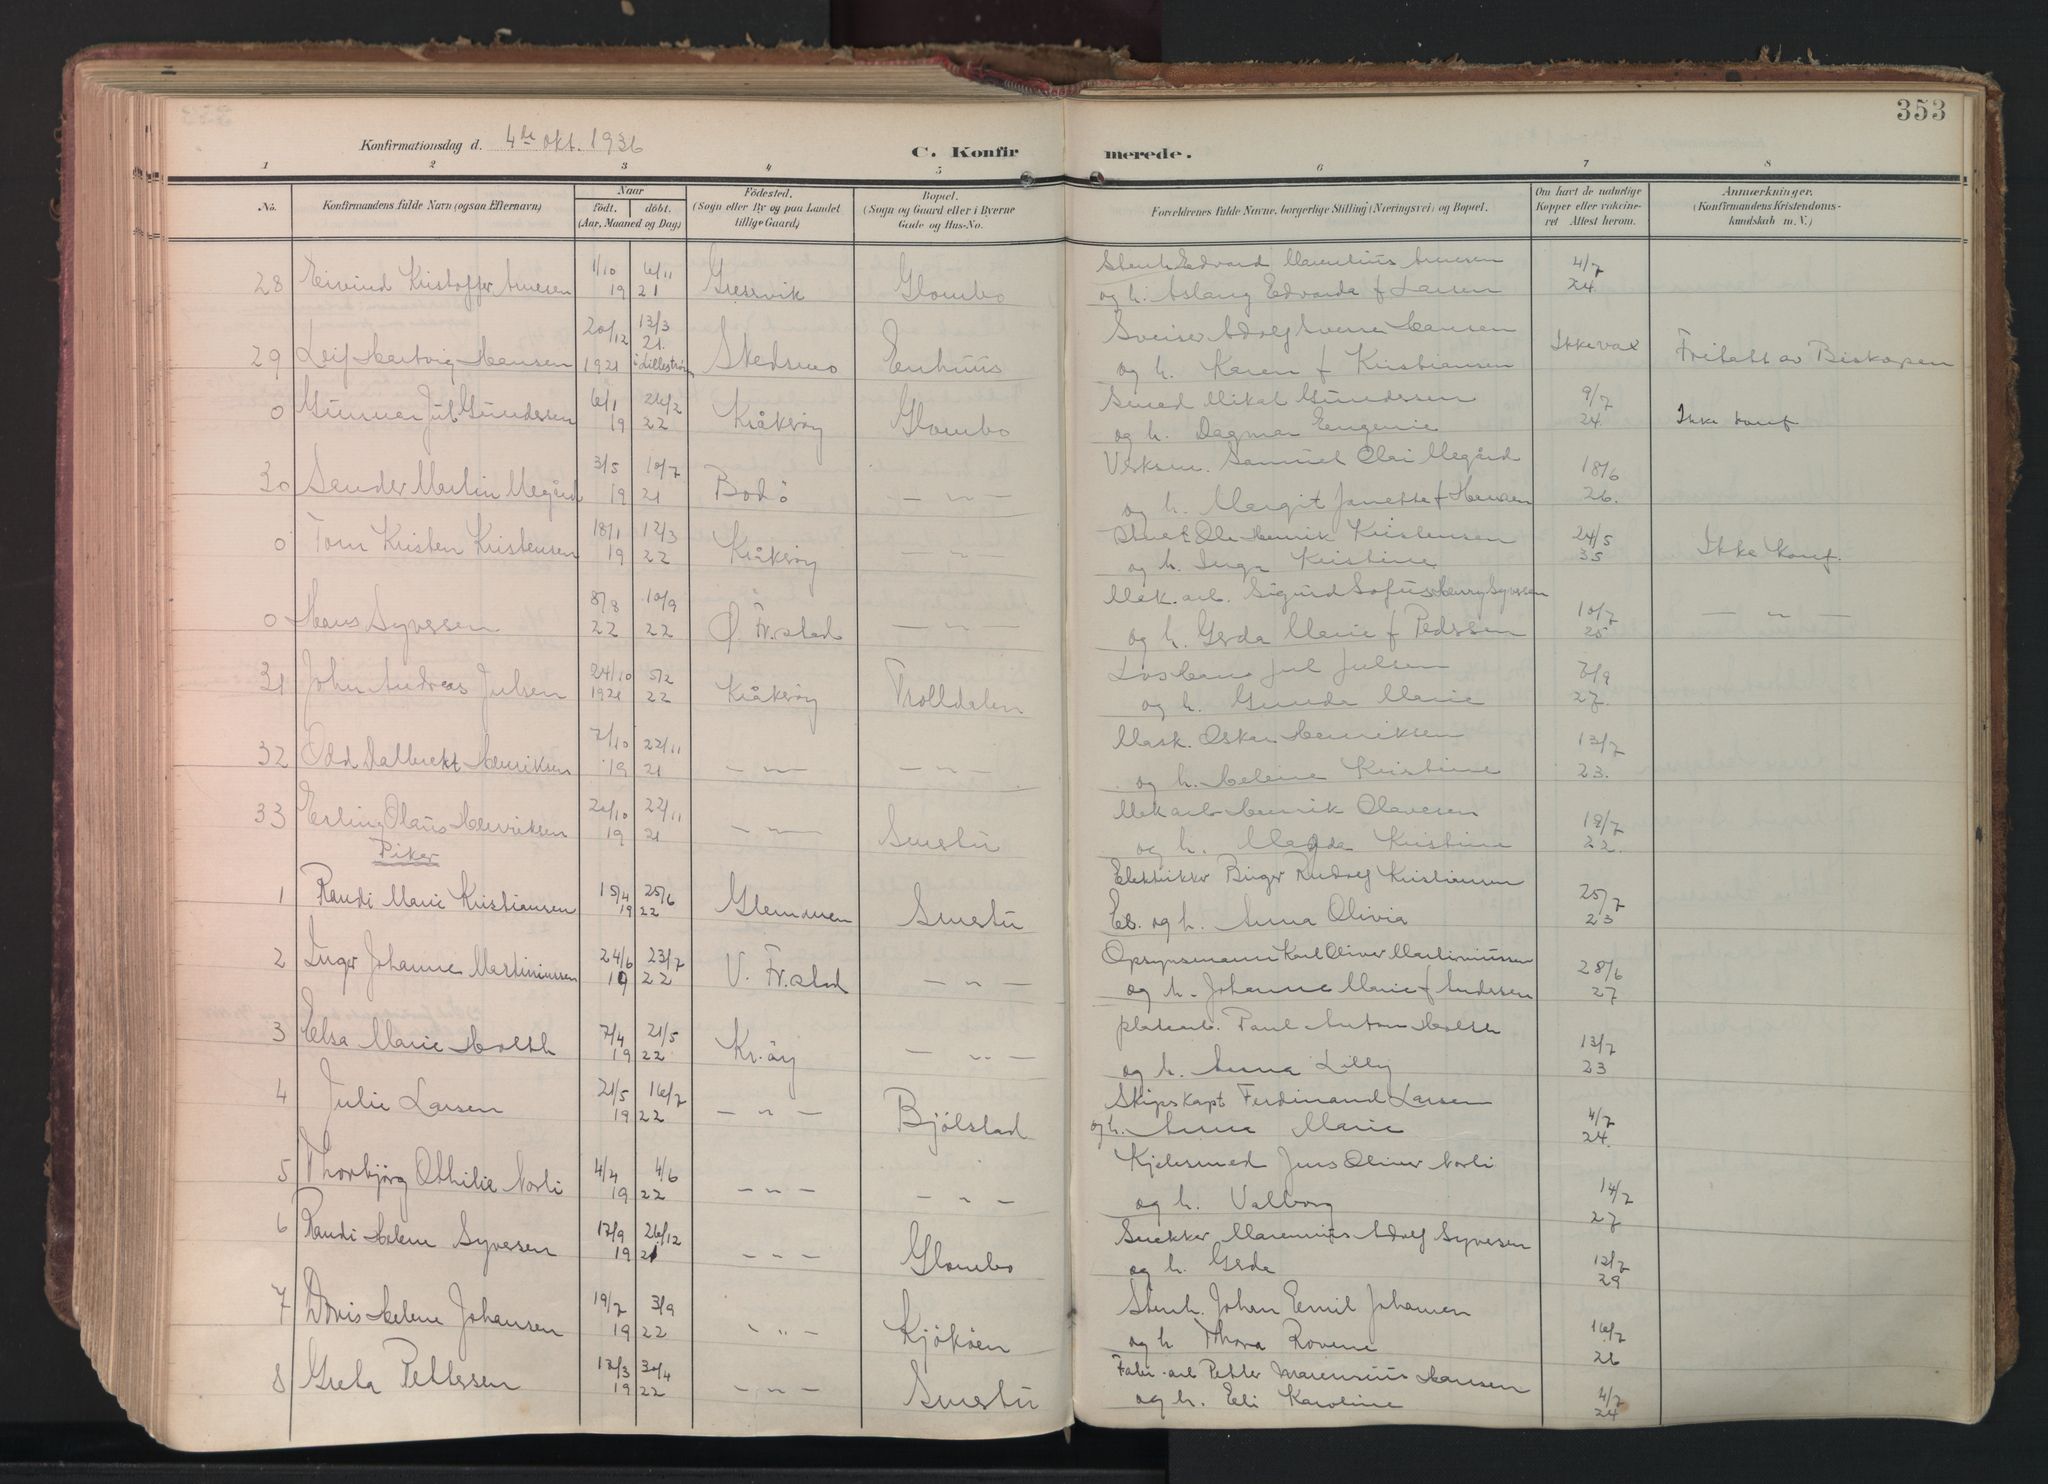 353
Konfirmationsdag d. 4de okt. 1936
C. Konfirmerede.
1 2 3 4 5 6 7 8
No. Konfirmandens fulde Navn (ogsaa Efternavn) Naar født. døbt. (Aar, Maaned og Dag) Fødested. (Sogn eller By og paa Landet tillige Gaard) Bopæl. (Sogn og Gaard eller i Byerne Gade og Hus-No. Forældrenes fulde Navne, borgerlige Stilling (Næringsvei) og Bopæl. Om havt de naturlige Kopper eller vakcineret Attest herom. Anmærkninger. (Konfirmandens Kristendomskundskab m. V.)
28 Eivind Kristoffer Arnesen 1/10 19 6/11 21 Gressvik Glombo Edvard Marentius Arnesen 4/7
og h. Aslaug Edvarda f Larsen 24
29 Leif Hartvig Hansen 20/12 1921 13/3 21. i Lillestrøm Skedsmo Enhuus Sveiser Adolf Hansen Ikke vax Fritatt av Biskopen
og h. Karen f Kristiansen
0 Gunnar Jul Gundersen 6/1 19 26/2 22 Kråkerøy Glombo Smed Mikal Gundersen 9/7 Ikke konf
og h. Dagmar Eugenie 24.
30 Sander Martin Megård 3/5 19 10/7 21 Bodö — " — Verksm. Samuel Olai Megård 18/6
og h. Margit Janette f Hansen 26.
0 Tom Kristen Kristensen 18/1 19 12/3 22 Kråkerøy — " — Ole Henrik Kristensen 24/5 Ikke konf.
og h. Inga Kristine 35
0 Hans Syversen 8/8 22 10/9 22 Ø. Fr.stad — " — Mek. arb. Sigurd Sofus Henry Syversen 10/7 — " —
og h. Gerda Marie f Pedersen 25
31 John Andreas Julsen 24/10 1921 5/2 22 Kråkerøy Trolldalen Jul Julsen 7/9
og h. Gunda Marie 27.
32 Odd Dalbrekt Henriksen 7/10 19 22/11 21 — " — — " — Mask. Oskar Henriksen 13/7
og h. Helene Kristine 23.
33 Erling Olaus Henriksen 2/10 19 22/11 21 — " — Smertu Mek arb Henrik Olavesen 18/7
og h. Magda Kristine 22.
Piker
1 Randi Marie Kristiansen 15/4 19 25/6 22 Glemmen Smertu Elektriker Birger Rudolf Kristiansen 25/7
og h. Anna Olivia 23
2 Inger Johanne Martiniussen 24/6 19 23/7 22 V. Fr.stad — " — Opsynsmann Karl Oliver Martiniussen 28/6
og h. Johanne Marie f Andersen 27
3 Elsa Marie Holth 7/4 19 21/5 22 Kr.øy — " — platearb. Paul Anton Holth 13/7
og h. Anna Lilly 23
4 Julie Larsen 21/5 19 16/7 22 — " — Bjölstad Skipskapt Ferdinand Larsen 4/7
og h. Anna Marie 24.
5 Thorbjörg Othilie Norli 4/4 19 4/6 22 — " — — " — Kjelesmed Jens Oliver Norli 14/7
og h. Valborg 27
6 Randi Helene Syversen 17/9 19 26/12 21 — " — Glombo Snekker Marennius Adolf Syversen 12/7
og h. Gerda 29
7 Doris Helene Johansen 19/7 19 3/9 22 — " — Kjøkøen Stenh. Johan Emil Johansen 16/7
og h Thora Rovena 26
8 Greta Pettersen 13/3 19 30/4 22 — " — Smertu Fabr. arb Petter Marensius Hansen 4/7
og h. Eli Karoline 24